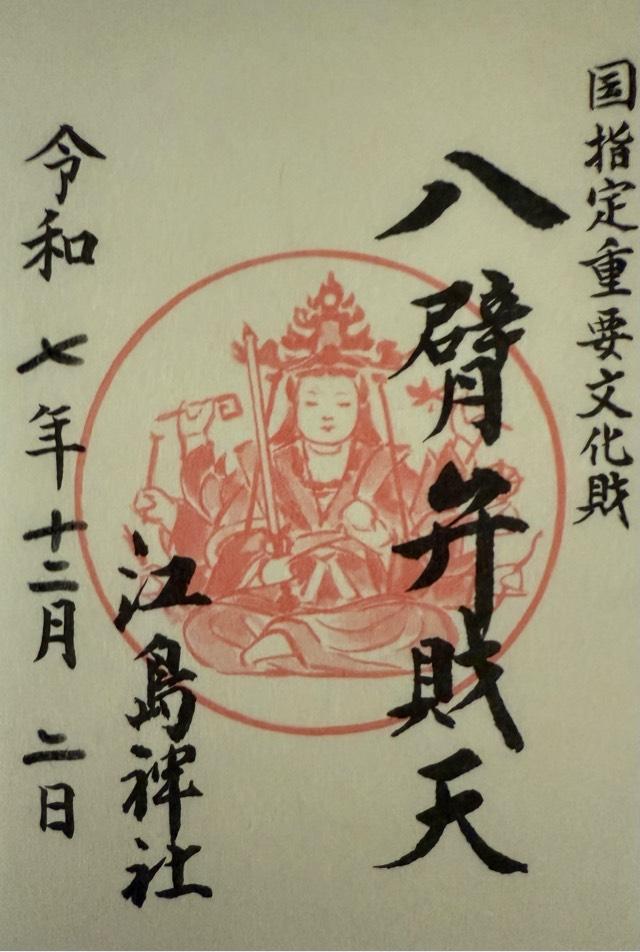 国指定重要文化財
八臂弁財天
江島神社
令和七年十二月二日